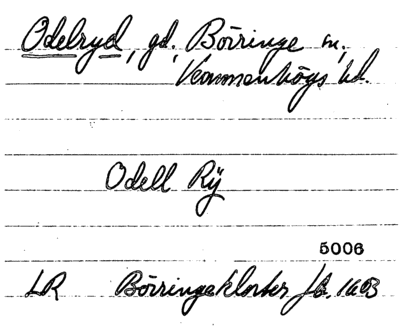 Odelryd, gd. Börringe sn,
Vemmenhögs hd.
Odell Rÿ
5006
LR Börringekloster Jb. 1603